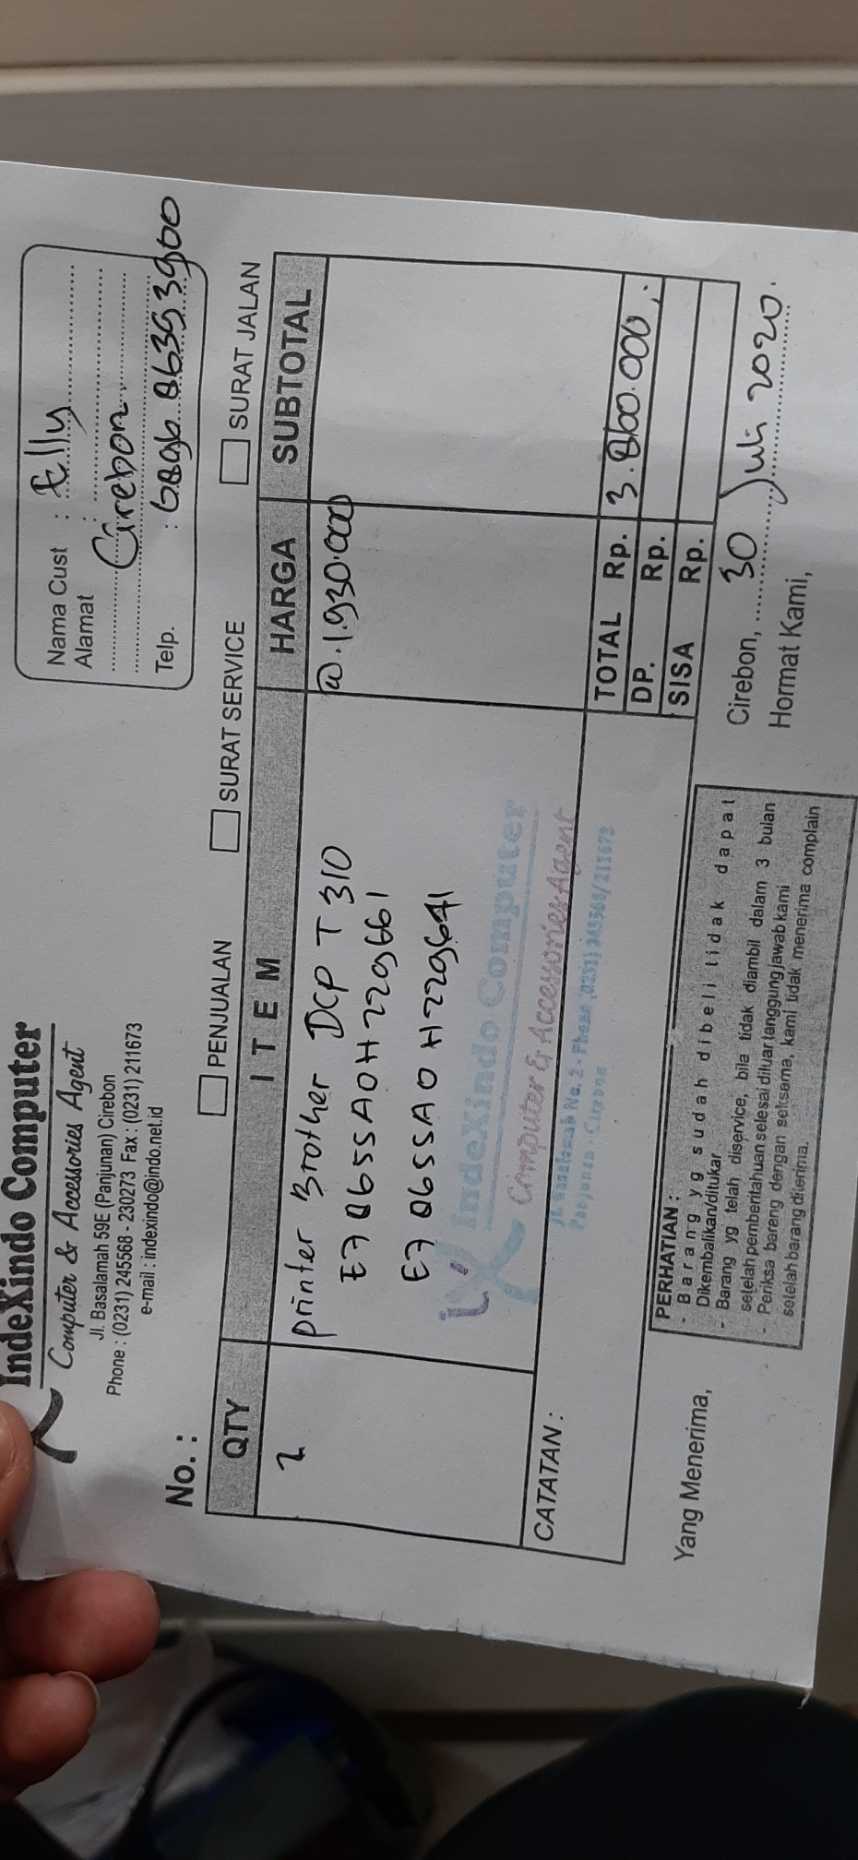 IndeXindo Computer
Computer & Accessories Agent
Jl. Basalamah 59E (Panjunan) Cirebon
Phone : (0231) 245568 - 230273 Fax : (0231) 211673
e-mail : indexindo@indo.net.id
Nama Cust : Elly
Alamat :
Cirebon
Telp. :
No. :
PENJUALAN SURAT SERVICE SURAT JALAN
QTY ITEM HARGA SUBTOTAL
2 printer Brother DCP T 310 @.1.930.000
E78655A0H229661
E78655A0H229641
IndeXindo Computer
Computer & Accessories Agent
Jl. Basalamah No. 2 - Phone (0231) 245568/211673
Panjunan - Cirebon
CATATAN :
TOTAL Rp. 3.860.000,-
DP. Rp.
SISA Rp.
PERHATIAN :
- Barang yg sudah dibeli tidak dapat
Dikembalikan/ditukar
- Barang yg telah diservice, bila tidak diambil dalam 3 bulan
setelah pemberitahuan selesai diluar tanggung jawab kami
- Periksa barang dengan seksama, kami tidak menerima complain
setelah barang diterima.
Cirebon, 30 Juli 2020.
Yang Menerima,
Hormat Kami,